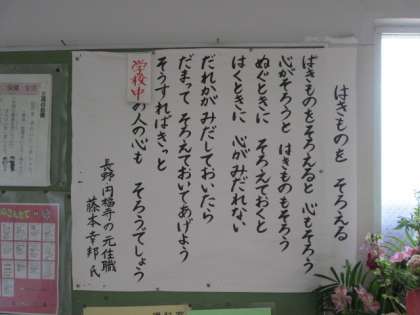 はきものを そろえる
はきものをそろえると 心もそろう
心がそろうと はきものもそろう
ぬぐときに そろえておくと
はくときに 心がみだれない
だれかが みだしておいたら
だまって そろえておいてあげよう
そうすればきっと
学校中
の人の心も そろうでしょう
長野 円福寺の元住職
藤本幸邦氏